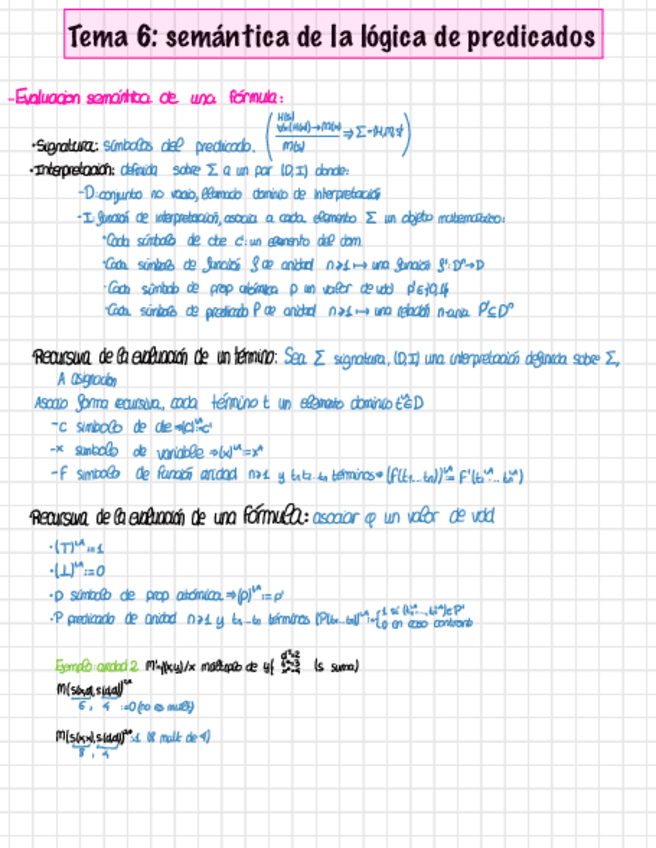 Tema 6: semántica de la lógica de predicados
-Evaluación semántica de una fórmula:
H(s)
∀x(H(x)→M(x)) ⇒ Σ=
M(s)
·Signatura: símbolos del predicado.
·Interpretación: definida sobre Σ a un par (D,I) donde:
-D: conjunto no vacío, llamado dominio de interpretación
-I: función de interpretación, asocia a cada elemento Σ un objeto matemático:
·Cada símbolo de cte c: un elemento del dom
·Cada símbolo de función f de aridad n≥1 ↦ una función f': Dⁿ→D
·Cada símbolo de prop atómica p un valor de vdd p'∈{0,1}
·Cada símbolo de predicado P de aridad n≥1 ↦ una relación n-aria P'⊆Dⁿ
Recursiva de la evaluación de un término: Sea Σ signatura, (D,I) una interpretación definida sobre Σ,
A asignación
Asocio forma recursiva, cada término t un elemento dominio ∈D
-c símbolo de cte ⇒
-x símbolo de variable ⇒
-f símbolo de función aridad n≥1 y t₁ t₂...tₙ términos ⇒ (f(t₁...tₙ))
Recursiva de la evaluación de una fórmula: asociar φ un valor de vdd
·(⊤) :=1
·(⊥) :=0
·p símbolo de prop atómica ⇒ (p) := p'
·P predicado de aridad n≥1 y t₁...tₙ términos (P(t₁...tₙ))
0 en caso contrario
Ejemplo: aridad 2 M'={(x,y)/x múltiplo de y} (s suma)
6, 4 :=0 (no es mult)
:=1 (8 mult de 4)
8, 4